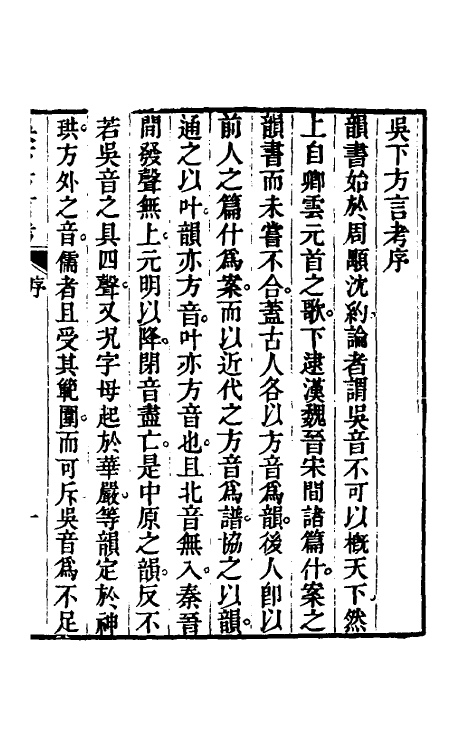 吳下方言考序
韻書始於周顒沈約論者謂吳音不可以槪天下然
上自卿雲元首之歌。下逮漢魏晉宋間諸篇什。案之
韻書而未嘗不合。蓋古人各以方音爲韻。後人卽以
前人之篇什爲案。而以近代之方音爲譜。協之以韻。
通之以叶。韻亦方音。叶亦方音也。且北音無入。秦晉
開發聲無上。元明以降。閉音盡亡。是中原之韻。反不
若吳音之具四聲。又况字母起於華嚴。等韻定於神
珙。方外之音。儒者且受其範圍。而可斥吳音爲不足
序
一